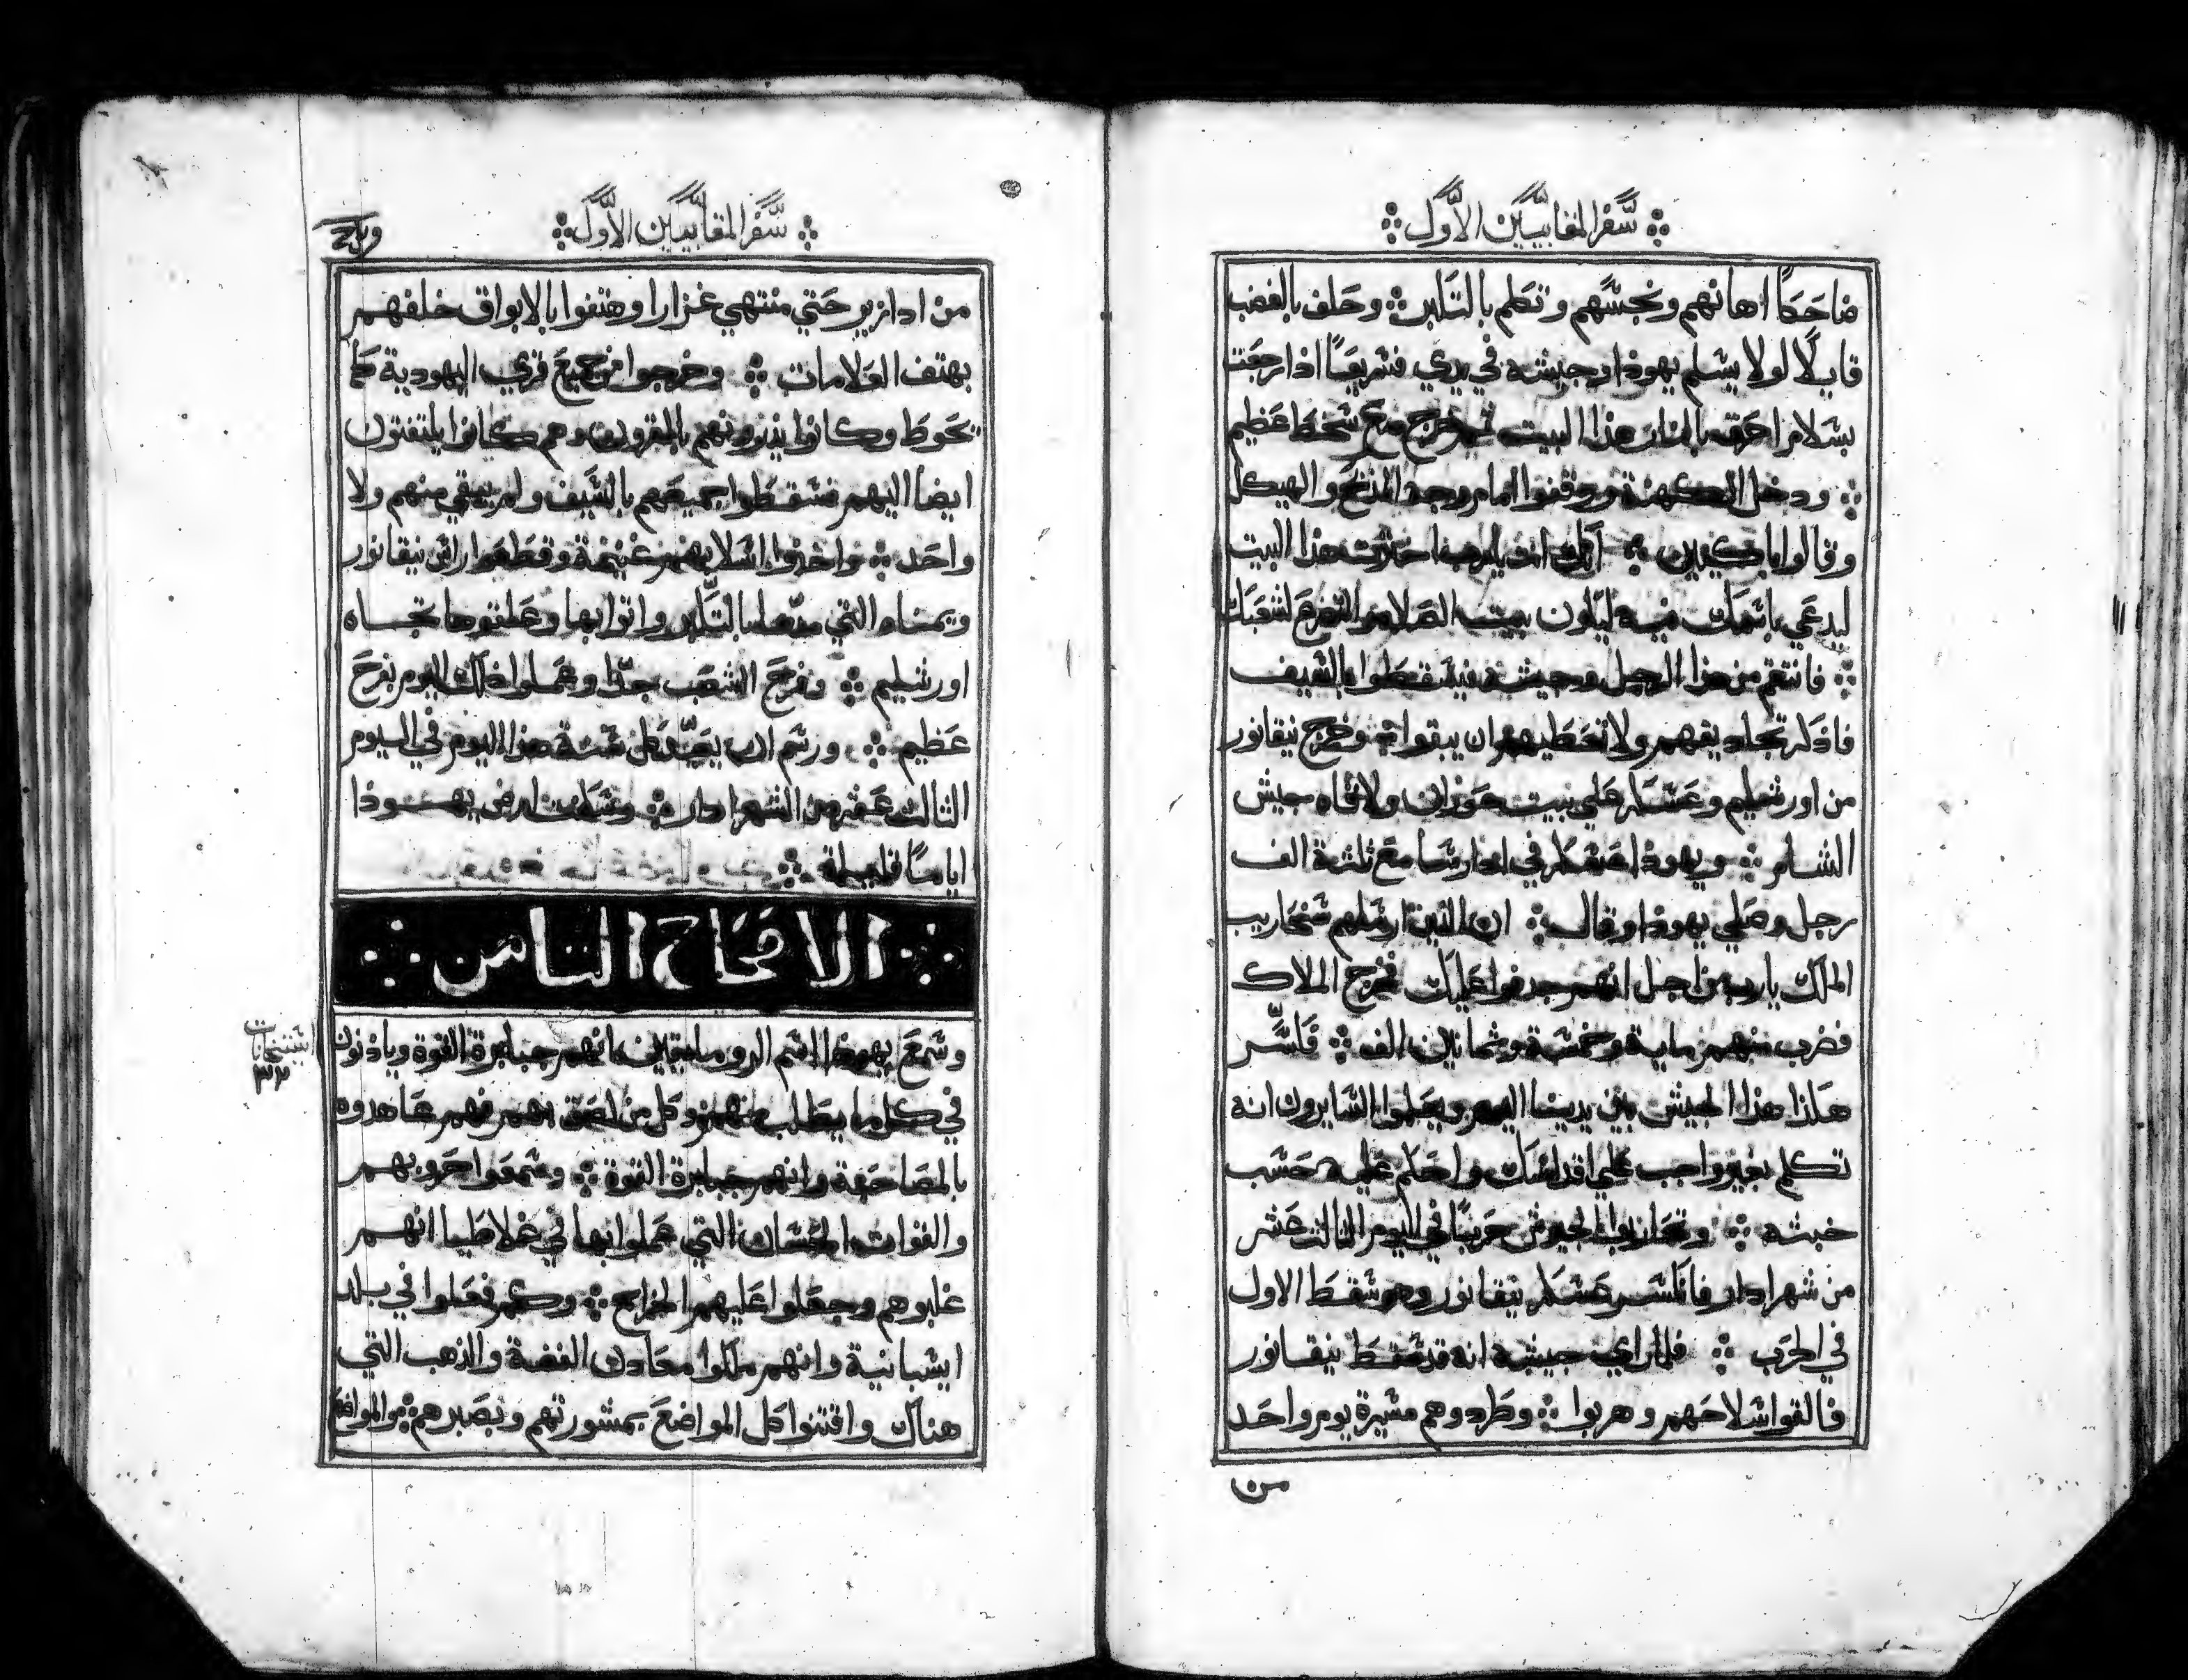 سفر المقابيين الاول
ضاحكًا اهانهم ونجسهم وتكلم بالتكبر وحلف بالغضب
قايلًا لولا يسلم يهوذا وجيشه في يدي فسريعًا اذا رجعت
بسلام احرق بالنار هذا البيت ثم خرج مع سخط عظيم
ودخل الكهنة ووقفوا امام وجه المذبح والهيكل
وقالوا باكيين انك انت يارب اخترت هذا البيت
ليدعي باسمك فيه ليكون بيت الصلاة والتضرع لشعبك
فانتقم من هذا الرجل وجيشه فيسقطوا بالسيف
فاذكر تجاديفهم ولا تعطيهم ان يبقوا وخرج نيقانور
من اورشليم وعسكر علي بيت حوران ولاقاه جيش
الشام ويهوذا عسكر في ادارسا مع ثلثة الف
رجل وصلي يهوذا وقال ان الذين ارسلهم سنحاريب
الملك يارب من اجل انهم جدفوا عليك فخرج الملاك
فضرب منهم ماية وخمسة وثمانين الف فاكسر
هكذا هذا الجيش بين يدينا اليوم ويعلموا السايرون انه
تكلم بغير واجب علي اقداسك واحكم عليه حسب
خبثه وتحاربوا الجيوش حربًا في اليوم الثالث عشر
من شهر ادار فانكسر عسكر نيقانور وهو سقط الاول
في الحرب فلما راي جيشه انه قد سقط نيقانور
فالقوا سلاحهم وهربوا وطردوهم مسيرة يوم واحد
من
سفر المقابيين الاول
من ادازير حتي منتهي غزارا وهتفوا بالابواق خلفهم
بهتف العلامات وخرجوا من جميع قري اليهودية كما
تحوط وكانوا يذرونهم بالقرون وهم كانوا يلتفتون
ايضا اليهم فسقطوا جميعهم بالسيف ولم يبقي منهم ولا
واحد واخذوا اسلابهم غنيمة وقطعوا راس نيقانور
ويمناه التي مدها بالتكبر واتوا بها وعلقوها تجاه
اورشليم وفرح الشعب جدًا وعملوا ذلك اليوم بفرح
عظيم ورسم ان يعيد كل سنة هذا اليوم في اليوم
الثالث عشر من الشهر ادار وسكتت ارض يهوذا
ايامًا قليلة
الاصحاح الثامن
وسمع يهوذا اسم الرومانيين انهم جبابرة القوة وياذنون
في كل ما يطلب منهم وكل من لصق بهم فهم عاهدوه
بالمصاحبة وانهم جبابرة القوة وسمعوا حروبهم
والقوات الحسان التي عملوا بها في غلاطيا انهم
غلبوهم وجعلوا عليهم الخراج وكم فعلوا في بلد
اسبانية وانهم ملكوا معادن الفضة والذهب التي
هناك واقتنوا كل المواضع بمشورتهم وبصبرهم والمواضع